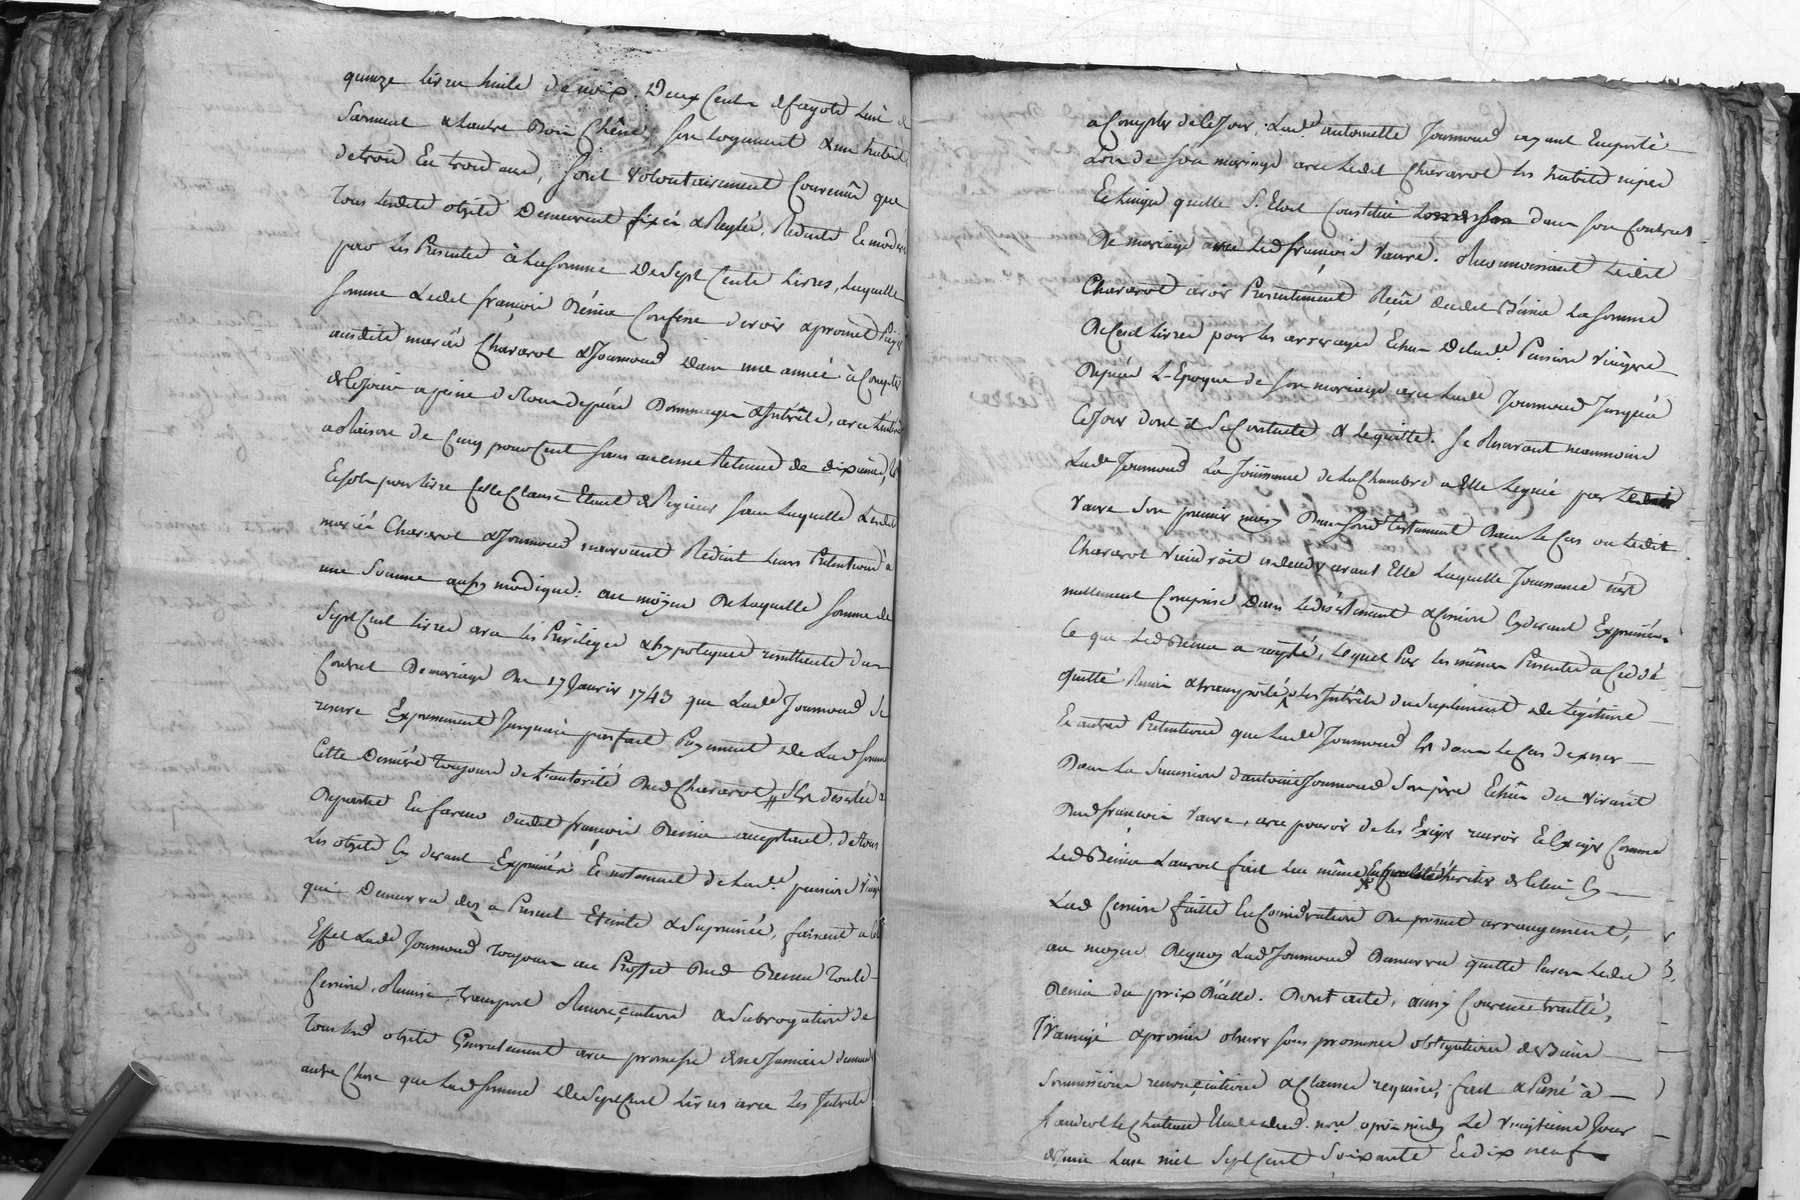 quinze livre huile de noix. Deux Cents de fagots L'un de
Sarment & Lautre Bois Chêne, son logement & un habit
de trois En trois ans, sont volontairement Convenus que
tous lesdits objets Demeurent fixés & Reglés, Reduits Et modérés
par les Presentes à La somme De Sept Cents livres, Laquelle
somme Ledit françois Bénier Confesse devoir & promet Payer
auxdits mariés Chavarot & Joumond Dans une année à Compter
de Cejour a peine de tous depens Dommages & Intérêts, avec Intérêts
a Raison de Cinq pour Cent sans aucune Retenue de dixieme,
Et sols pour livre Cette Clause Etant de Rigueur sans Laquelle Lesdits
mariés Chavarot & Joumond n'auroient Réduit leurs Pretentions à
une Somme aussy modique: au moÿen De Laquelle somme de
Sept Cent livres avec les Privileges & hypoteques resultants d'un
Contrat De mariage Du 17 Janvier 1743 que Lade Joumond se
reserve Expressement Jusques a parfait Payement De Lad somme
Cette Derniere toujours de L'autorité Dud Chavarot, s'Est désistée &
Departie En faveur dudit françois Bénier acceptant, de tous
Les objets Cy devant Exprimés Et notament de Lade pension viagere
qui Demeurera des a Present Eteinte & Suprimée, faisant a Cet
Effet Lade Joumond toujours au Proffit Dud Benier toute
Cession, Remise, transport Renonciation & Subrogation de
tous lesd objets Generalement avec promesse de ne Jamais demander
autre Chose que Lad somme De Sept Cent livres avec Les Interets
a Compter de Cejour, Lade antoinette Joumond ayant Emporté
Lors de son mariage avec Ledit Chavarot les habits nipes
Et Linges quelle S'Etoit Constitué dans son Contrat
De mariage avec Led françois vauvre. Reconnoissant Ledit
Chavarot avoir Presentement Reçu dudit Bénier La somme
De Cent livres pour les arrerages Echus De Lade Pension viagere
Depuis L'Epoque de son mariage avec Lade Joumond Jusqu'à
Cejour dont il Se Contente & Le quitte. Se Reservant neanmoins
Lade Joumond La Jouissance de La Chambre a Elle leguée par
vauvre Son premier mary Dans son testament Dans Le Cas ou Ledit
Chavarot viendroit a avant Elle Laquelle Jouissance n'est
nullement Comprise Dans Le desistement & Cession Cy devant Exprimés.
Ce que Led Benier a accepté, Lequel Par les mêmes Presentes a Cedé
quitté Remis & transporté, les Intérêts du suplement De Legitime
Et autres Pretentions que Lade Joumond Est dans Le Cas d'exercer
Dans La Succession d'antoine Joumond Son père Echue du vivant
Dud françois vauvre, avec pouvoir de les Exiger recevoir Et Exiger Comme
Led Bénier L'auroit fait Lui même heritier de Celui Cy
Lad Cession faitte En Consideration Du present arrangement,
au moyen De quoy Lad Joumond Demeurera quitte Envers Ledit
Benier du prix D'Elle. Dont acte, ainsy Convenu traitté,
Transigé & promis observer sous promesses obligations de Biens
Soumissions renonciations & Clauses requises, fait & Passé à
le Château Etude dud. nore après midy Le vingtieme Jour
de Juin L'an mil Sept Cent Soixante Et dix neuf